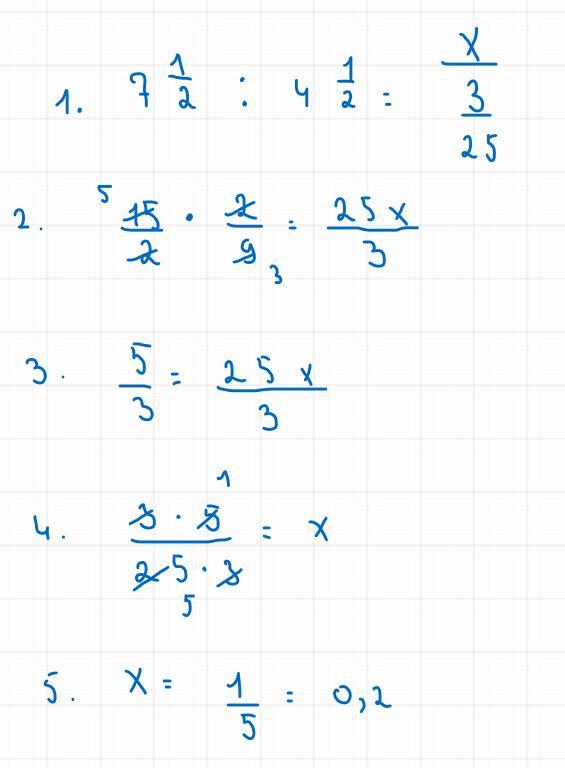 1. 7 1/2 : 4 1/2 = x/(3/25)
2. 5 15/2 · 2/9 3 = 25x/3
3. 5/3 = 25x/3
4. 3 · 5 1 / 25 · 3 5 = x
5. x = 1/5 = 0,2